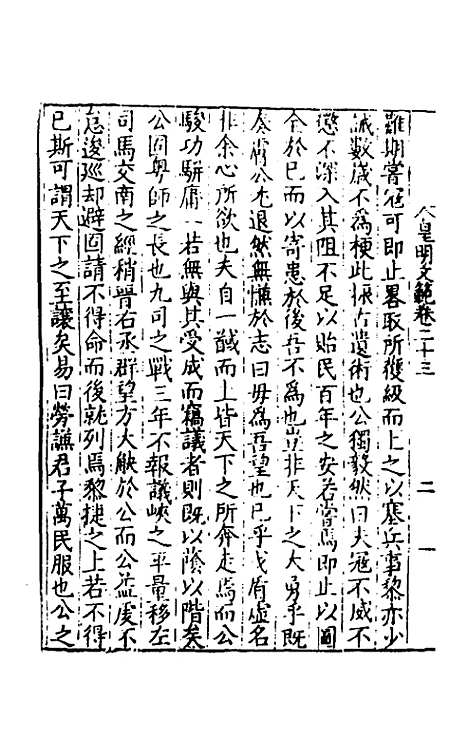 皇明文範卷二十三
二
難期嘗寇可即止畧取所獲級而上之以塞兵事黎亦少
誡數歲不為梗此振古遺術也公獨毅然曰夫寇不威不
懲不深入其阻不足以貽民百年之安若嘗焉即止以圖
全於巳而以寄患於後吾不為也豈非天下之大勇乎既
奏膚公允退然無慊於志曰毋為吾望也巳乎戍盾虛名
非余心所欲也夫自一馘而上皆天下之所奔走焉而公
駿功騈庸一若無與其受成而竊議者則既以蔭以階矣
公固粵師之長也九司之戰三年不報議峽之平量移左
司馬交南之經稍晋右丞群望方大觖於公而公益虔不
怠逡廵却避固請不得命而後就列焉黎捷之上若不得
已斯可謂天下之至讓矣易曰勞謙君子萬民服也公之